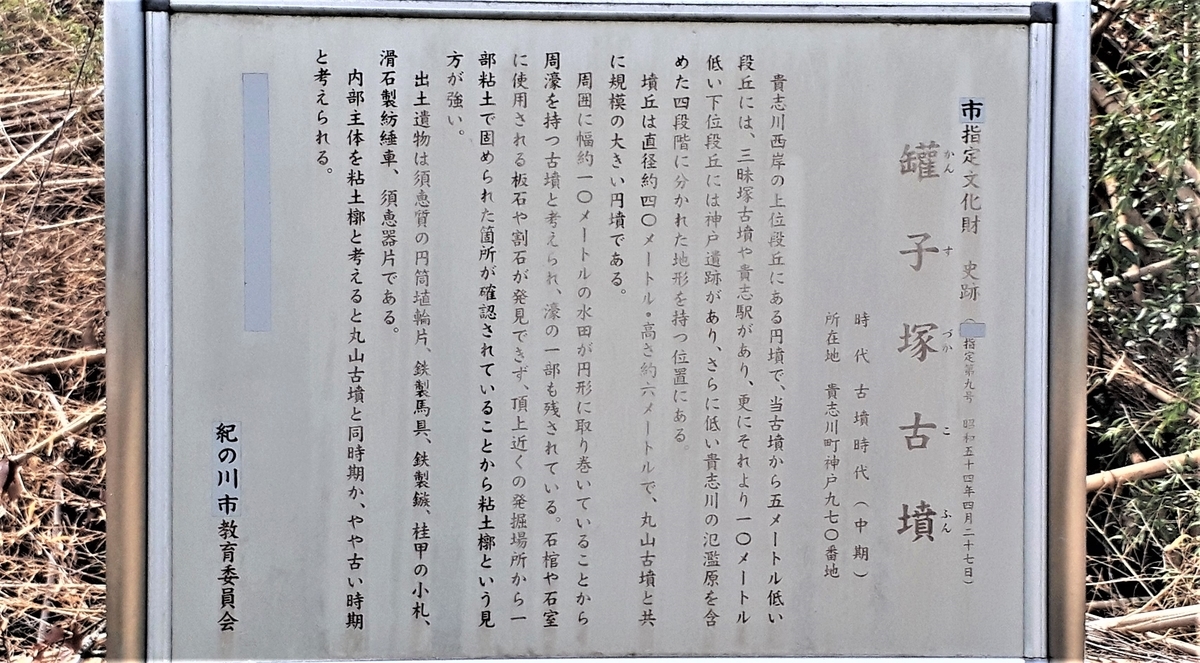 市指定文化財　史跡　（指定第九号　昭和五十四年四月二十七日）
罐子塚古墳
かん す づか こ ふん
時　代　古墳時代（中期）
所在地　貴志川町神戸九七〇番地
貴志川西岸の上位段丘にある円墳で、当古墳から五メートル低い
段丘には、三昧塚古墳や貴志駅があり、更にそれより一〇メートル
低い下位段丘には神戸遺跡があり、さらに低い貴志川の氾濫原を含
めた四段階に分かれた地形を持つ位置にある。
墳丘は直径約四〇メートル・高さ約六メートルで、丸山古墳と共
に規模の大きい円墳である。
周囲に幅約一〇メートルの水田が円形に取り巻いていることから
周濠を持つ古墳と考えられ、濠の一部も残されている。石棺や石室
に使用される板石や割石が発見できず、頂上近くの発掘場所から一
部粘土で固められた箇所が確認されていることから粘土槨という見
方が強い。
出土遺物は須恵質の円筒埴輪片、鉄製馬具、鉄製鏃、桂甲の小札、
滑石製紡錘車、須恵器片である。
内部主体を粘土槨と考えると丸山古墳と同時期か、やや古い時期
と考えられる。
紀の川市教育委員会